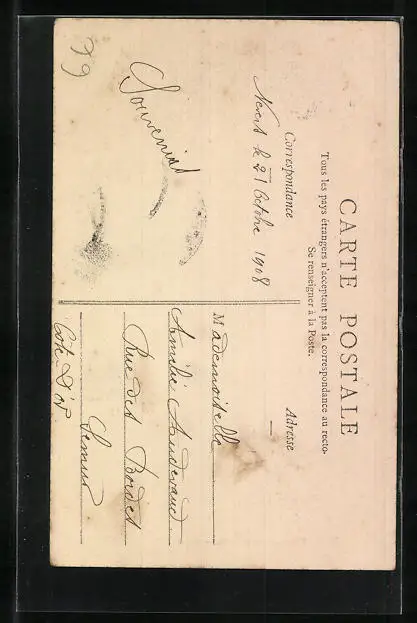 CARTE POSTALE
Tous les pays étrangers n'acceptent pas la correspondance au recto.
Se renseigner à la Poste.
Correspondance
Nevers le 21 Octobre 1908
Souvenirs
Adresse
Mademoiselle
Amélie
Rue des Bordes
Semur
Côte d'or